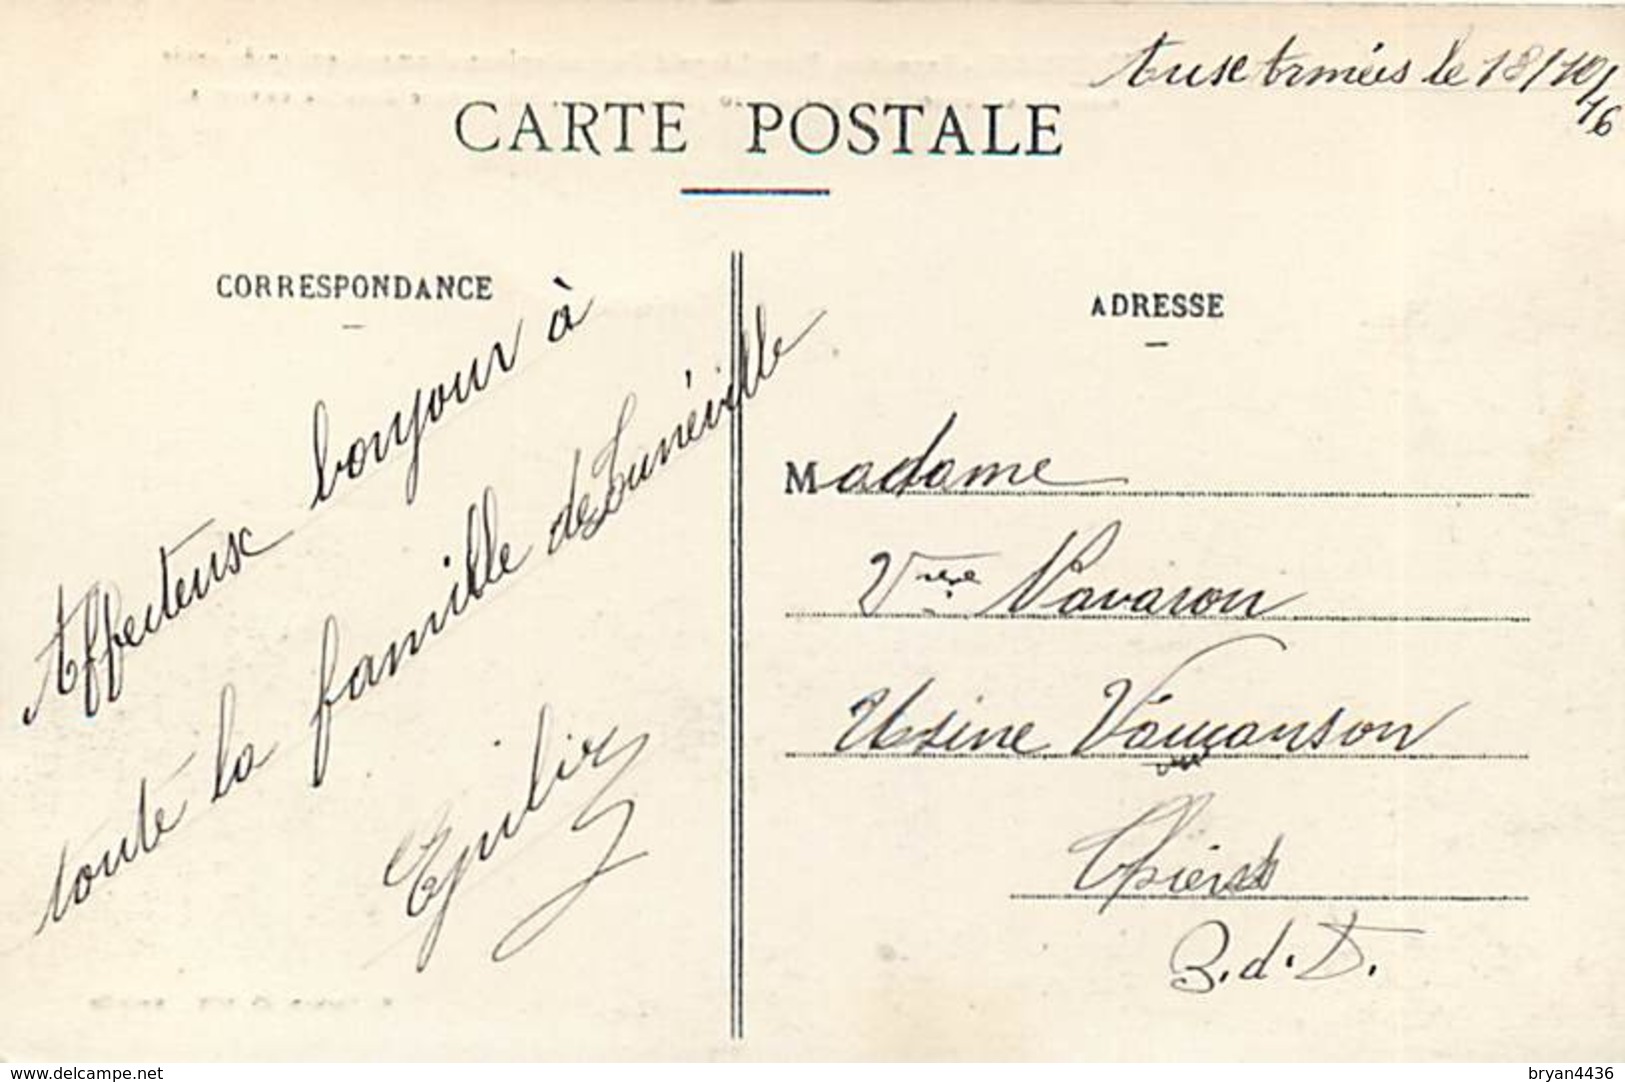 Aux Armées le 18/10/16
CARTE POSTALE
CORRESPONDANCE
Affecteux bonjour à
toute la famille de Lunéville
ADRESSE
Madame
Vve Navaron
Usine Vaucanson
Thiers
P. d. D.
delcampe.net
bryan4436